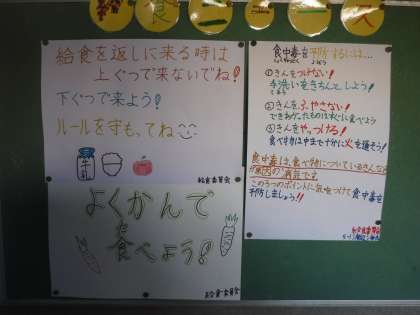 給食ニュース
給食を返しに来る時は
上ぐつで来ないでね!
下ぐつで来よう!
ルールを守もってね
給食委員会
よくかんで
食べよう!
給食委員会
食中毒を予防するには…
①きんをつけない!
手洗いをきちんとしよう!
②きんをふやさない!
できあがったものはすぐに食べよう
③きんをやっつける!
食べ物は中まで十分に火を通そう!
食中毒は、食べ物についているきんなど
が原因の病気です
この3つのポイントに気をつけて食中毒を
予防しましょう!!
給食委員会